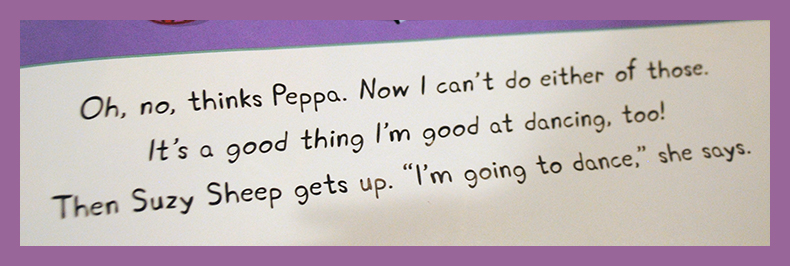 Oh, no, thinks Peppa. Now I can't do either of those.
It's a good thing I'm good at dancing, too!
Then Suzy Sheep gets up. “I'm going to dance,” she says.